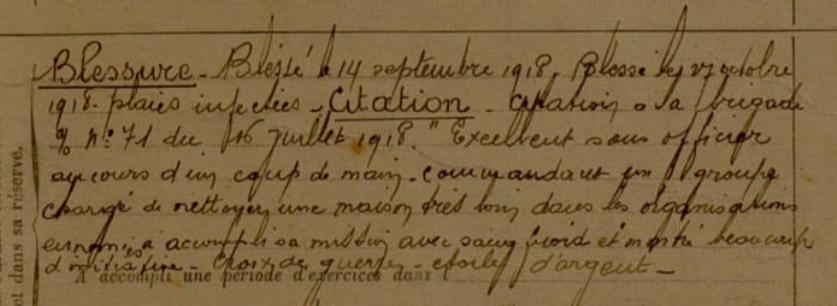 Blessure - Blessé le 14 septembre 1918. Blessé le 17 octobre
1918. plaies infectées - Citation - Citation à la brigade
% N° 71 du 16 juillet 1918. "Excellent sous officier
au cours d'un coup de main. commandant un groupe
chargé de nettoyer une maison très loin dans les organisations
ennemies a accompli sa mission avec sang froid et montré beaucoup
d'initiative - Croix de guerre - etoile d'argent -
A accompli une période d'exercices dans l
ot dans sa réserve.